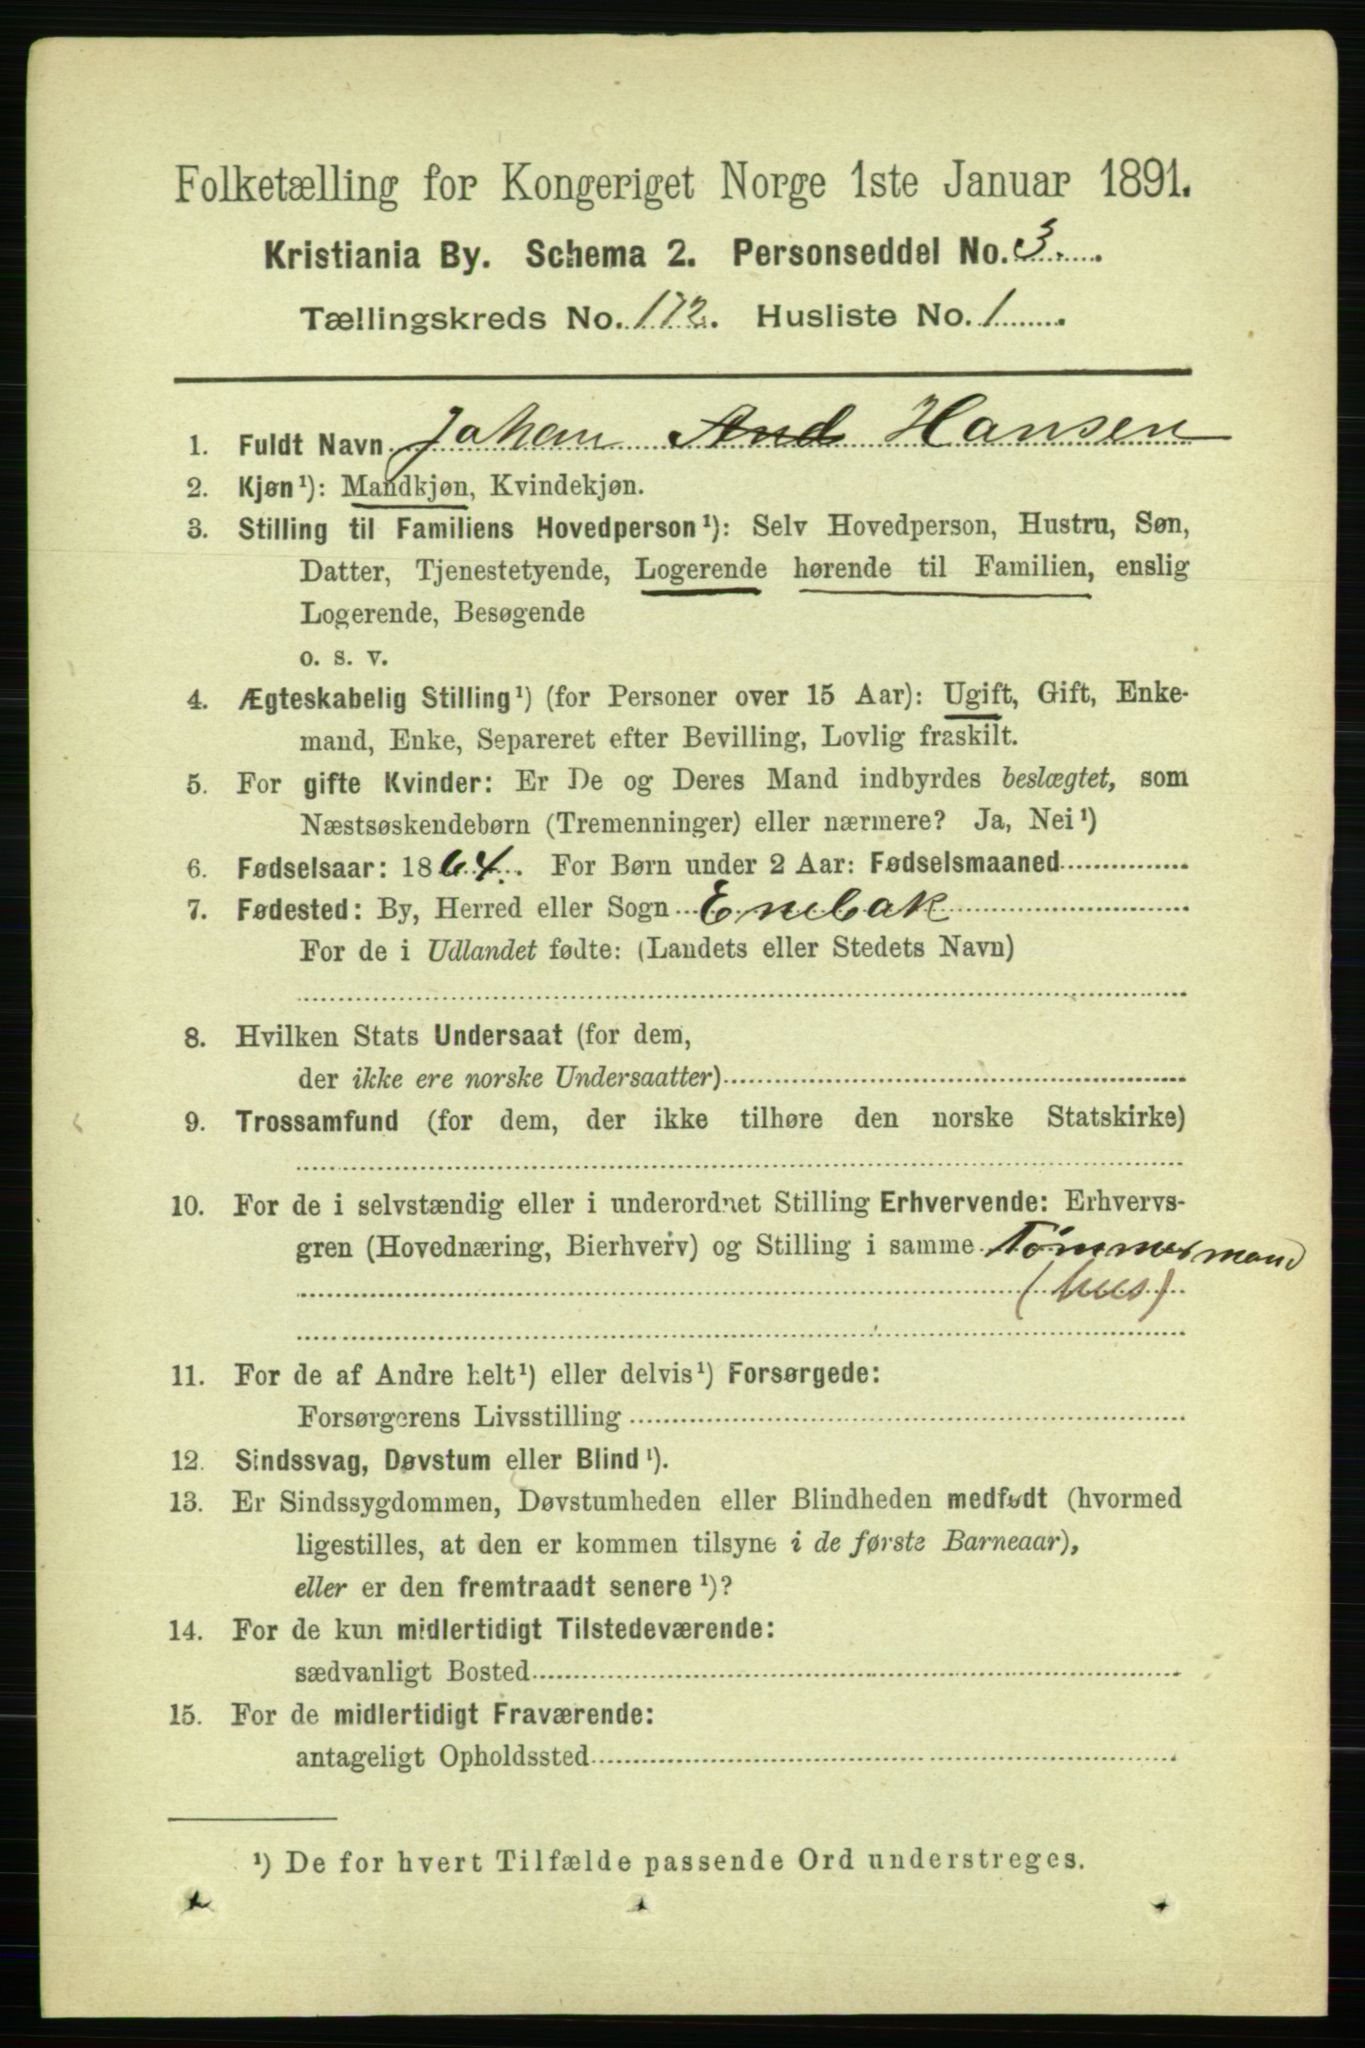 Folketælling for Kongeriget Norge 1ste Januar 1891.
Kristiania By. Schema 2. Personseddel No. 3.
Tællingskreds No. 172. Husliste No. 1
1. Fuldt Navn Johan And Hansen
2. Kjøn¹): Mandkjøn, Kvindekjøn.
3. Stilling til Familiens Hovedperson¹): Selv Hovedperson, Hustru, Søn,
Datter, Tjenestetyende, Logerende hørende til Familien, enslig
Logerende, Besøgende
o. s. v.
4. Ægteskabelig Stilling¹) (for Personer over 15 Aar): Ugift, Gift, Enke-
mand, Enke, Separeret efter Bevilling, Lovlig fraskilt.
5. For gifte Kvinder: Er De og Deres Mand indbyrdes beslægtet, som
Næstsøskendebørn (Tremenninger) eller nærmere? Ja, Nei¹)
6. Fødselsaar: 1864. For Børn under 2 Aar: Fødselsmaaned
7. Fødested: By, Herred eller Sogn Enebak
For de i Udlandet fødte: (Landets eller Stedets Navn)
8. Hvilken Stats Undersaat (for dem,
der ikke ere norske Undersaatter)
9. Trossamfund (for dem, der ikke tilhøre den norske Statskirke)
10. For de i selvstændig eller i underordnet Stilling Erhvervende: Erhvervs-
gren (Hovednæring, Bierhverv) og Stilling i samme Tömmermand
(hus)
11. For de af Andre helt¹) eller delvis¹) Forsørgede:
Forsørgerens Livsstilling
12. Sindssvag, Døvstum eller Blind¹).
13. Er Sindssygdommen, Døvstumheden eller Blindheden medfødt (hvormed
ligestilles, at den er kommen tilsyne i de første Barneaar),
eller er den fremtraadt senere¹)?
14. For de kun midlertidigt Tilstedeværende:
sædvanligt Bosted
15. For de midlertidigt Fraværende:
antageligt Opholdssted
¹) De for hvert Tilfælde passende Ord understreges.